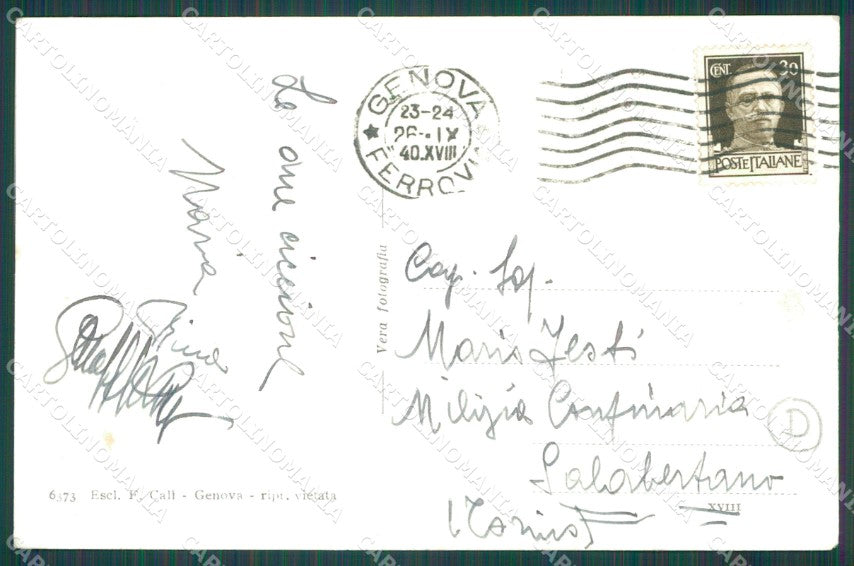 GENOVA
23-24
26-.IX
40.XVIII
FERROVI
CENT. 30
POSTE ITALIANE
Le due ciccione
Maria
Vera fotografia
Cap. Sq.
Mario Testi
Milizia Confinaria
D
Salabertano
(Torino)
XVIII
6373 Escl. F. Calì - Genova - ripr. vietata
CARTOLINOMANIA